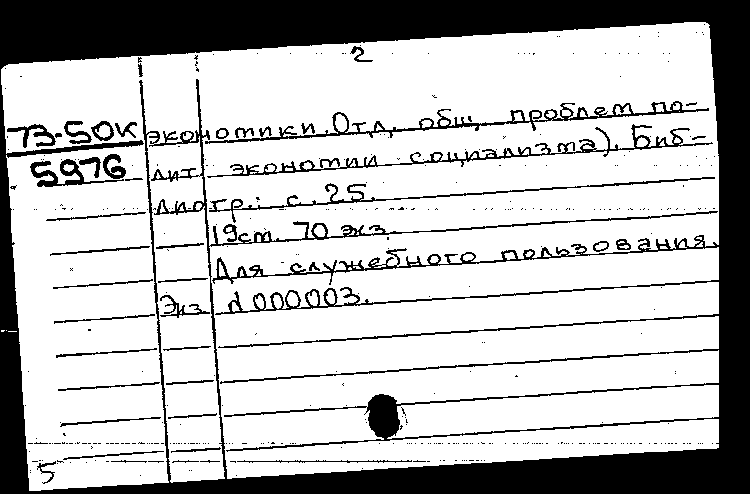 2
73-50К экономики. Отд. общ. проблем по-
5976 лит. экономии социализма). Биб-
лиогр.: с. 25.
19см. 70 экз.
Для служебного пользования.
Экз. № 000003.
5